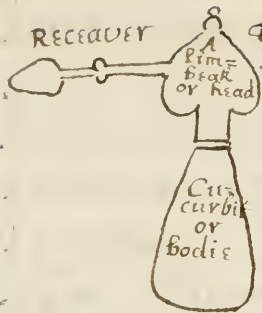 Receaver
A
lim=
beak
or head
Cu=
curbit
or
bodie